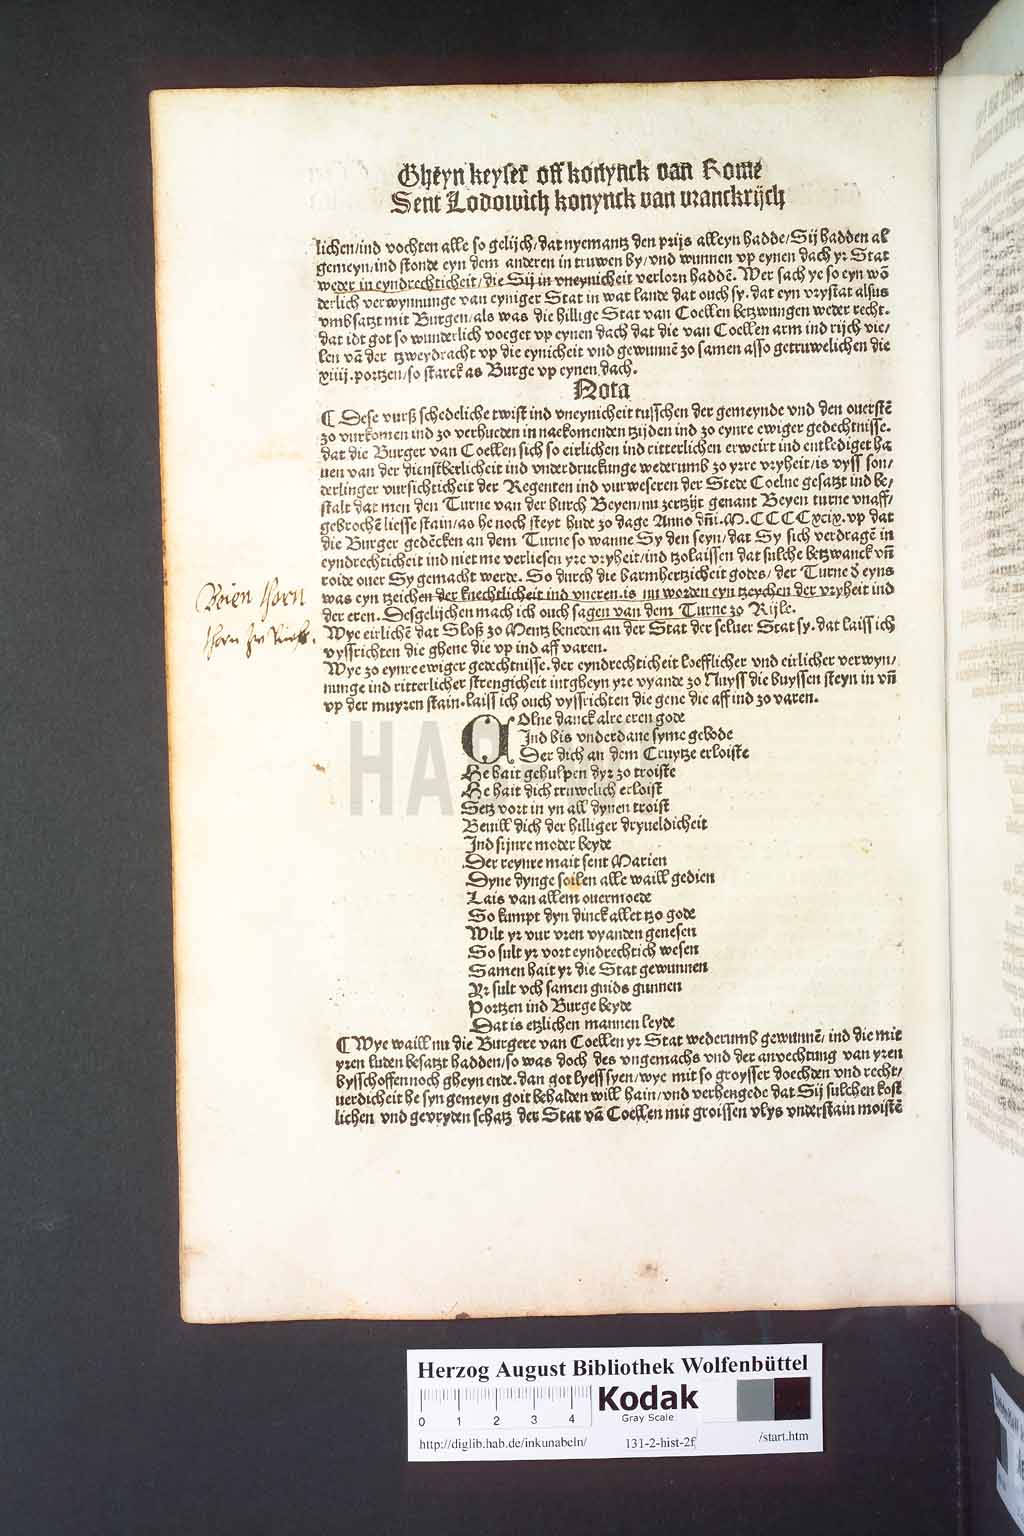 Gheyn keyser off konynck van Rome
Sent Lodowich konynck van vranckrijch
lichen/ind vochten alle so gelijch/dat nyemantz den prijs alleyn hadde/Sij hadden al
gemeyn/ind stonde eyn dem anderen in truwen by/vnd wunnen vp eynen dach yr Stat
weder in eyndrechticheit/die Sij in vneynicheit verlorn haddē. Wer sach ye so eyn wō
derlich verwynnunge van eyniger Stat in wat lande dat ouch sy. dat eyn vrystat alsus
vmbsatzt mit Burgen/als was die hillige Stat van Coellen betzwungen weder recht.
dat idt got so wunderlich voeget vp eynen dach dat die van Coellen arm ind rijch vie/
len vā der tzweydracht vp die eynicheit vnd gewunnē zo samen asso getruwelichen die
xiiij.portzen/so starck as Burge vp eynen dach.
Nota
¶ Dese vurß schedeliche twist ind vneynicheit tusschen der gemeynde vnd den ouerstē
zo vurkomen ind zo verhueden in nackomenden tzijden ind zo eynre ewiger gedechtnisse.
dat die Burger van Coellen sich so eirlichen ind ritterlichen erweirt ind entlediget ha
uen van der dienstberlicheit ind vnderdruckunge wederumb zo yrre vryheit/is vyss son/
derlinger vursichticheit der Regenten ind vurweseren der Stede Coelne gesatzt ind be/
stalt dat men den Turne van der burch Beyen/nu zertzijt genant Beyen turne vnaff/
gebrochē liesse stain/as he noch steyt hude zo dage Anno dn̄i.M.CCCCxcix.vp dat
die Burger gedēcken an dem Turne so wanne Sy den seyn/dat Sy sich verdragē in
eyndrechticheit ind niet me verliesen yre vryheit/ind tzolaissen dat sulche betzwanck vn̄
roide ouer Sy gemacht werde. So durch die barmhertzicheit godes/der Turne d̄ eyns
was eyn tzeichen der knechtlicheit ind vneren.is nu worden eyn tzeychen der vryheit ind
der eren. Desgelijchen mach ich ouch sagen van dem Turne zo Rijle.
Beien thorn
Wye eirlichē dat Sloß zo Mentz beneden an der Stat der seluer Stat sy.dat laiss ich
vyssrichten die ghene die vp ind aff varen.
Wye zo eynre ewiger gedechtnisse.der eyndrechticheit loefflicher vnd eirlicher verwyn/
nunge ind ritterlicher strengicheit intgheyn yre vyande zo Nuyss die buyssen steyn in vn̄
vp der muyren stain.laiss ich ouch vyssrichten die gene die aff ind zo varen.
COlne danck alre eren gode
Ind bis vnderdane syme gebode
Der dich an dem Cruytze erloiste
He hait gehulpen dyr zo troiste
He hait dich truwelich erloist
Setz vort in yn all dynen troist
Beuill dich der hilliger dryueldicheit
Ind sijnre moder beyde
Der reynre mait sent Marien
Dyne dynge soilen alle waill gedien
Lais van allem ouermoede
So kumpt dyn dinck allet tzo gode
Wilt yr vur vren vyanden genesen
So sult yr vort eyndrechtich wesen
Samen hait yr die Stat gewunnen
Yr sult vch samen guids gunnen
Portzen ind Burge beyde
Dat is etzlichen mannen leyde
¶ Wye waill nu die Burgere van Coellen yr Stat wederumb gewunnē/ind die mit
yren luden besatzt hadden/so was doch des vngemachs vnd der anvechtung van yren
bysschoffen noch gheyn ende.dan got lyess syen/wye mit so groysser doechden vnd recht/
uerdicheit he syn gemeyn goit behalden will hain/vnd verhengede dat Sij sulchen kost
lichen vnd gevryden schatz der Stat vā Coellen mit groissen vlys vnderstain moistē
HA
Herzog August Bibliothek Wolfenbüttel
0 1 2 3 4
Kodak
Gray Scale
http://diglib.hab.de/inkunabeln/ 131-2-hist-2f /start.htm